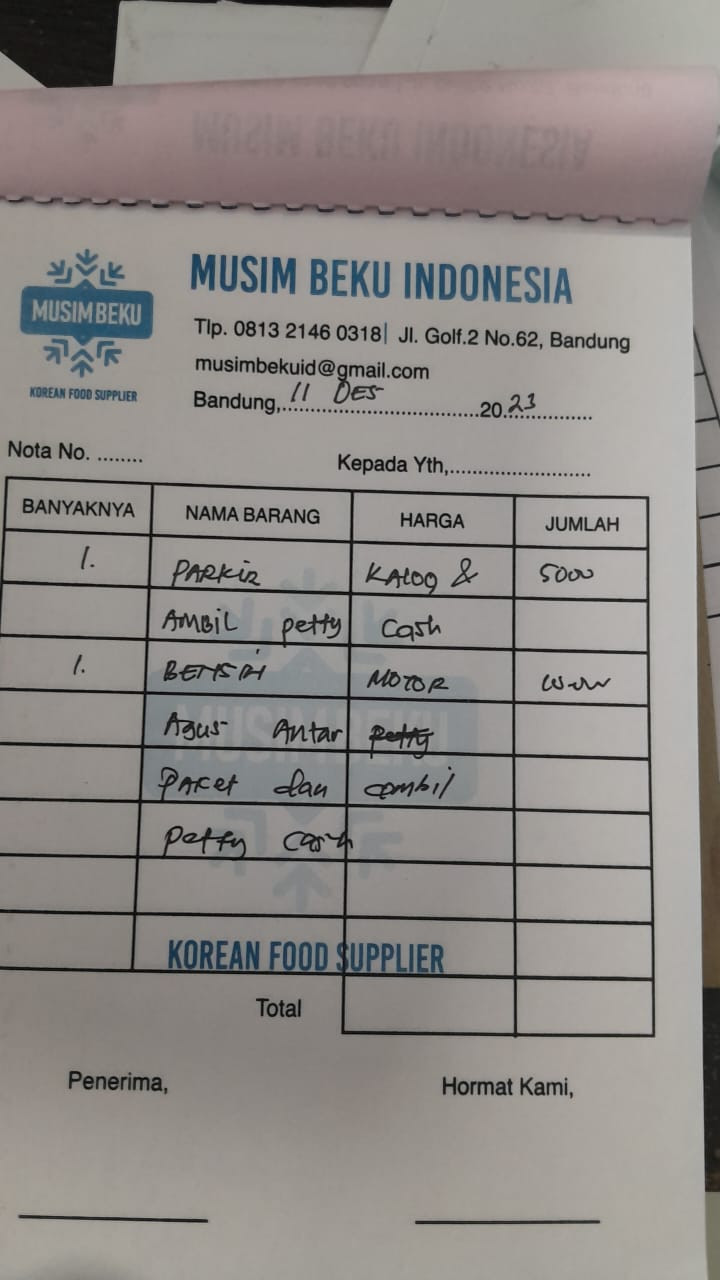 MUSIM BEKU INDONESIA
MUSIM BEKU
KOREAN FOOD SUPPLIER
MUSIM BEKU INDONESIA
Tlp. 0813 2146 0318| Jl. Golf.2 No.62, Bandung
musimbekuid@gmail.com
Bandung, 11 DES 2023
Nota No. ........
Kepada Yth,........................
BANYAKNYA NAMA BARANG HARGA JUMLAH
1. PARKIR KALOG & 5000
AMBIL petty cash
1. BENSIN MOTOR
Agus Antar petty
PAKET dan ambil
petty cash
MUSIM BEKU
KOREAN FOOD SUPPLIER
Total
Penerima,
Hormat Kami,